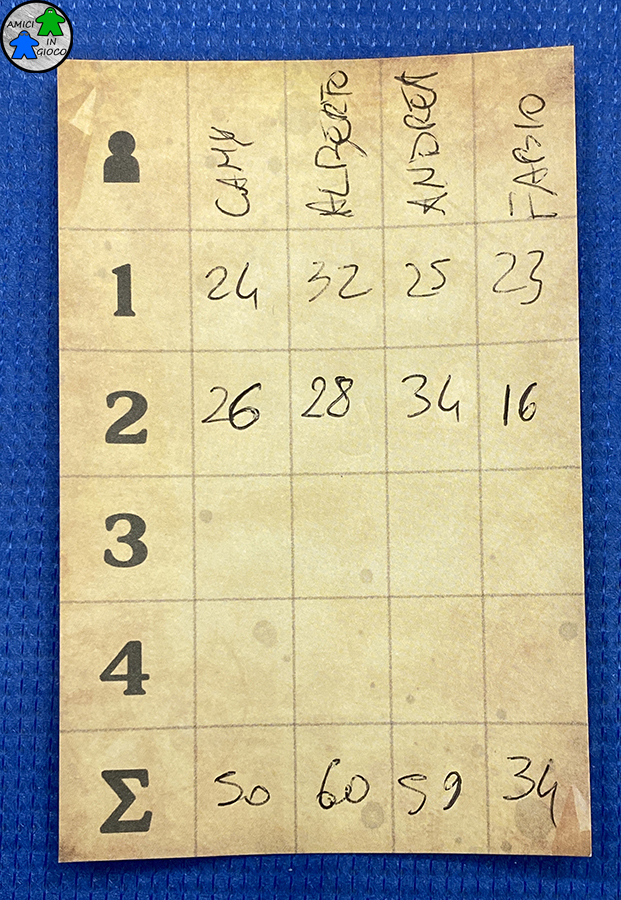 AMICI
IN
GIOCO
CAMY ALBERTO ANDREA FABIO
1 24 32 25 23
2 26 28 34 16
3
4
Σ 50 60 59 34